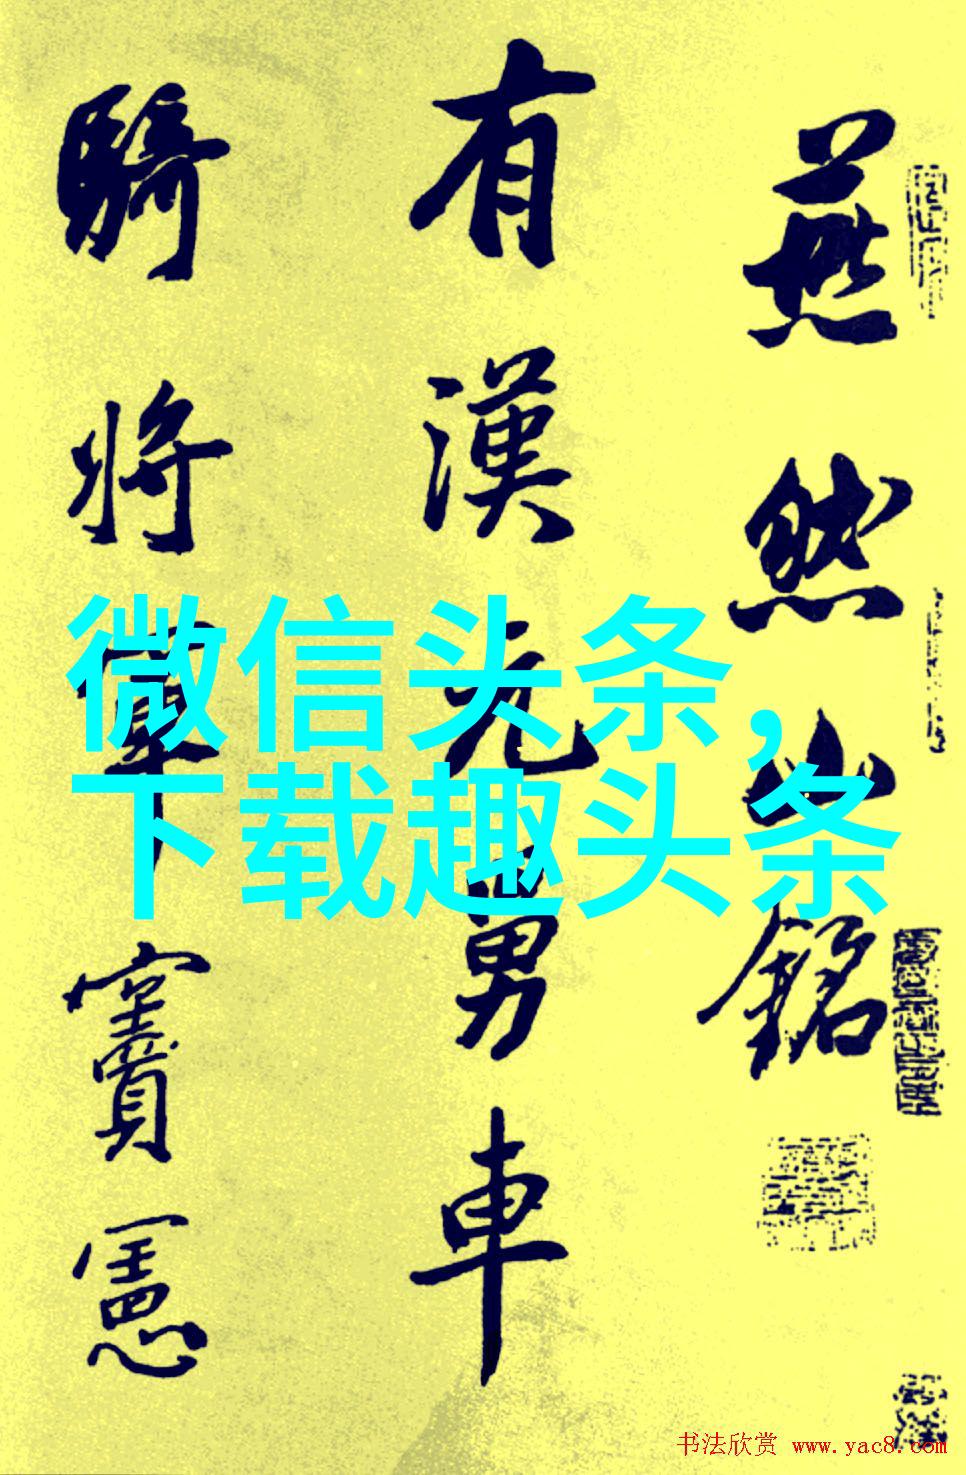 燕然山銘
有漢元舅車
騎將軍竇憲
微信头条,
下载趣头条
书法欣赏 www.yac8.com